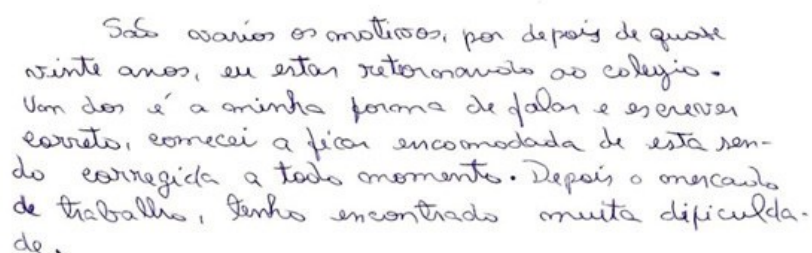 São varios os motivos, por depois de quase
vinte anos, eu estar retornando ao colegio.
Um dos é a minha forma de falar e escrever
correto, comecei a ficar encomodada de esta sen-
do corregida a todo momento. Depois o mercado
de trabalho, tenho encontrado muita dificulda-
de.